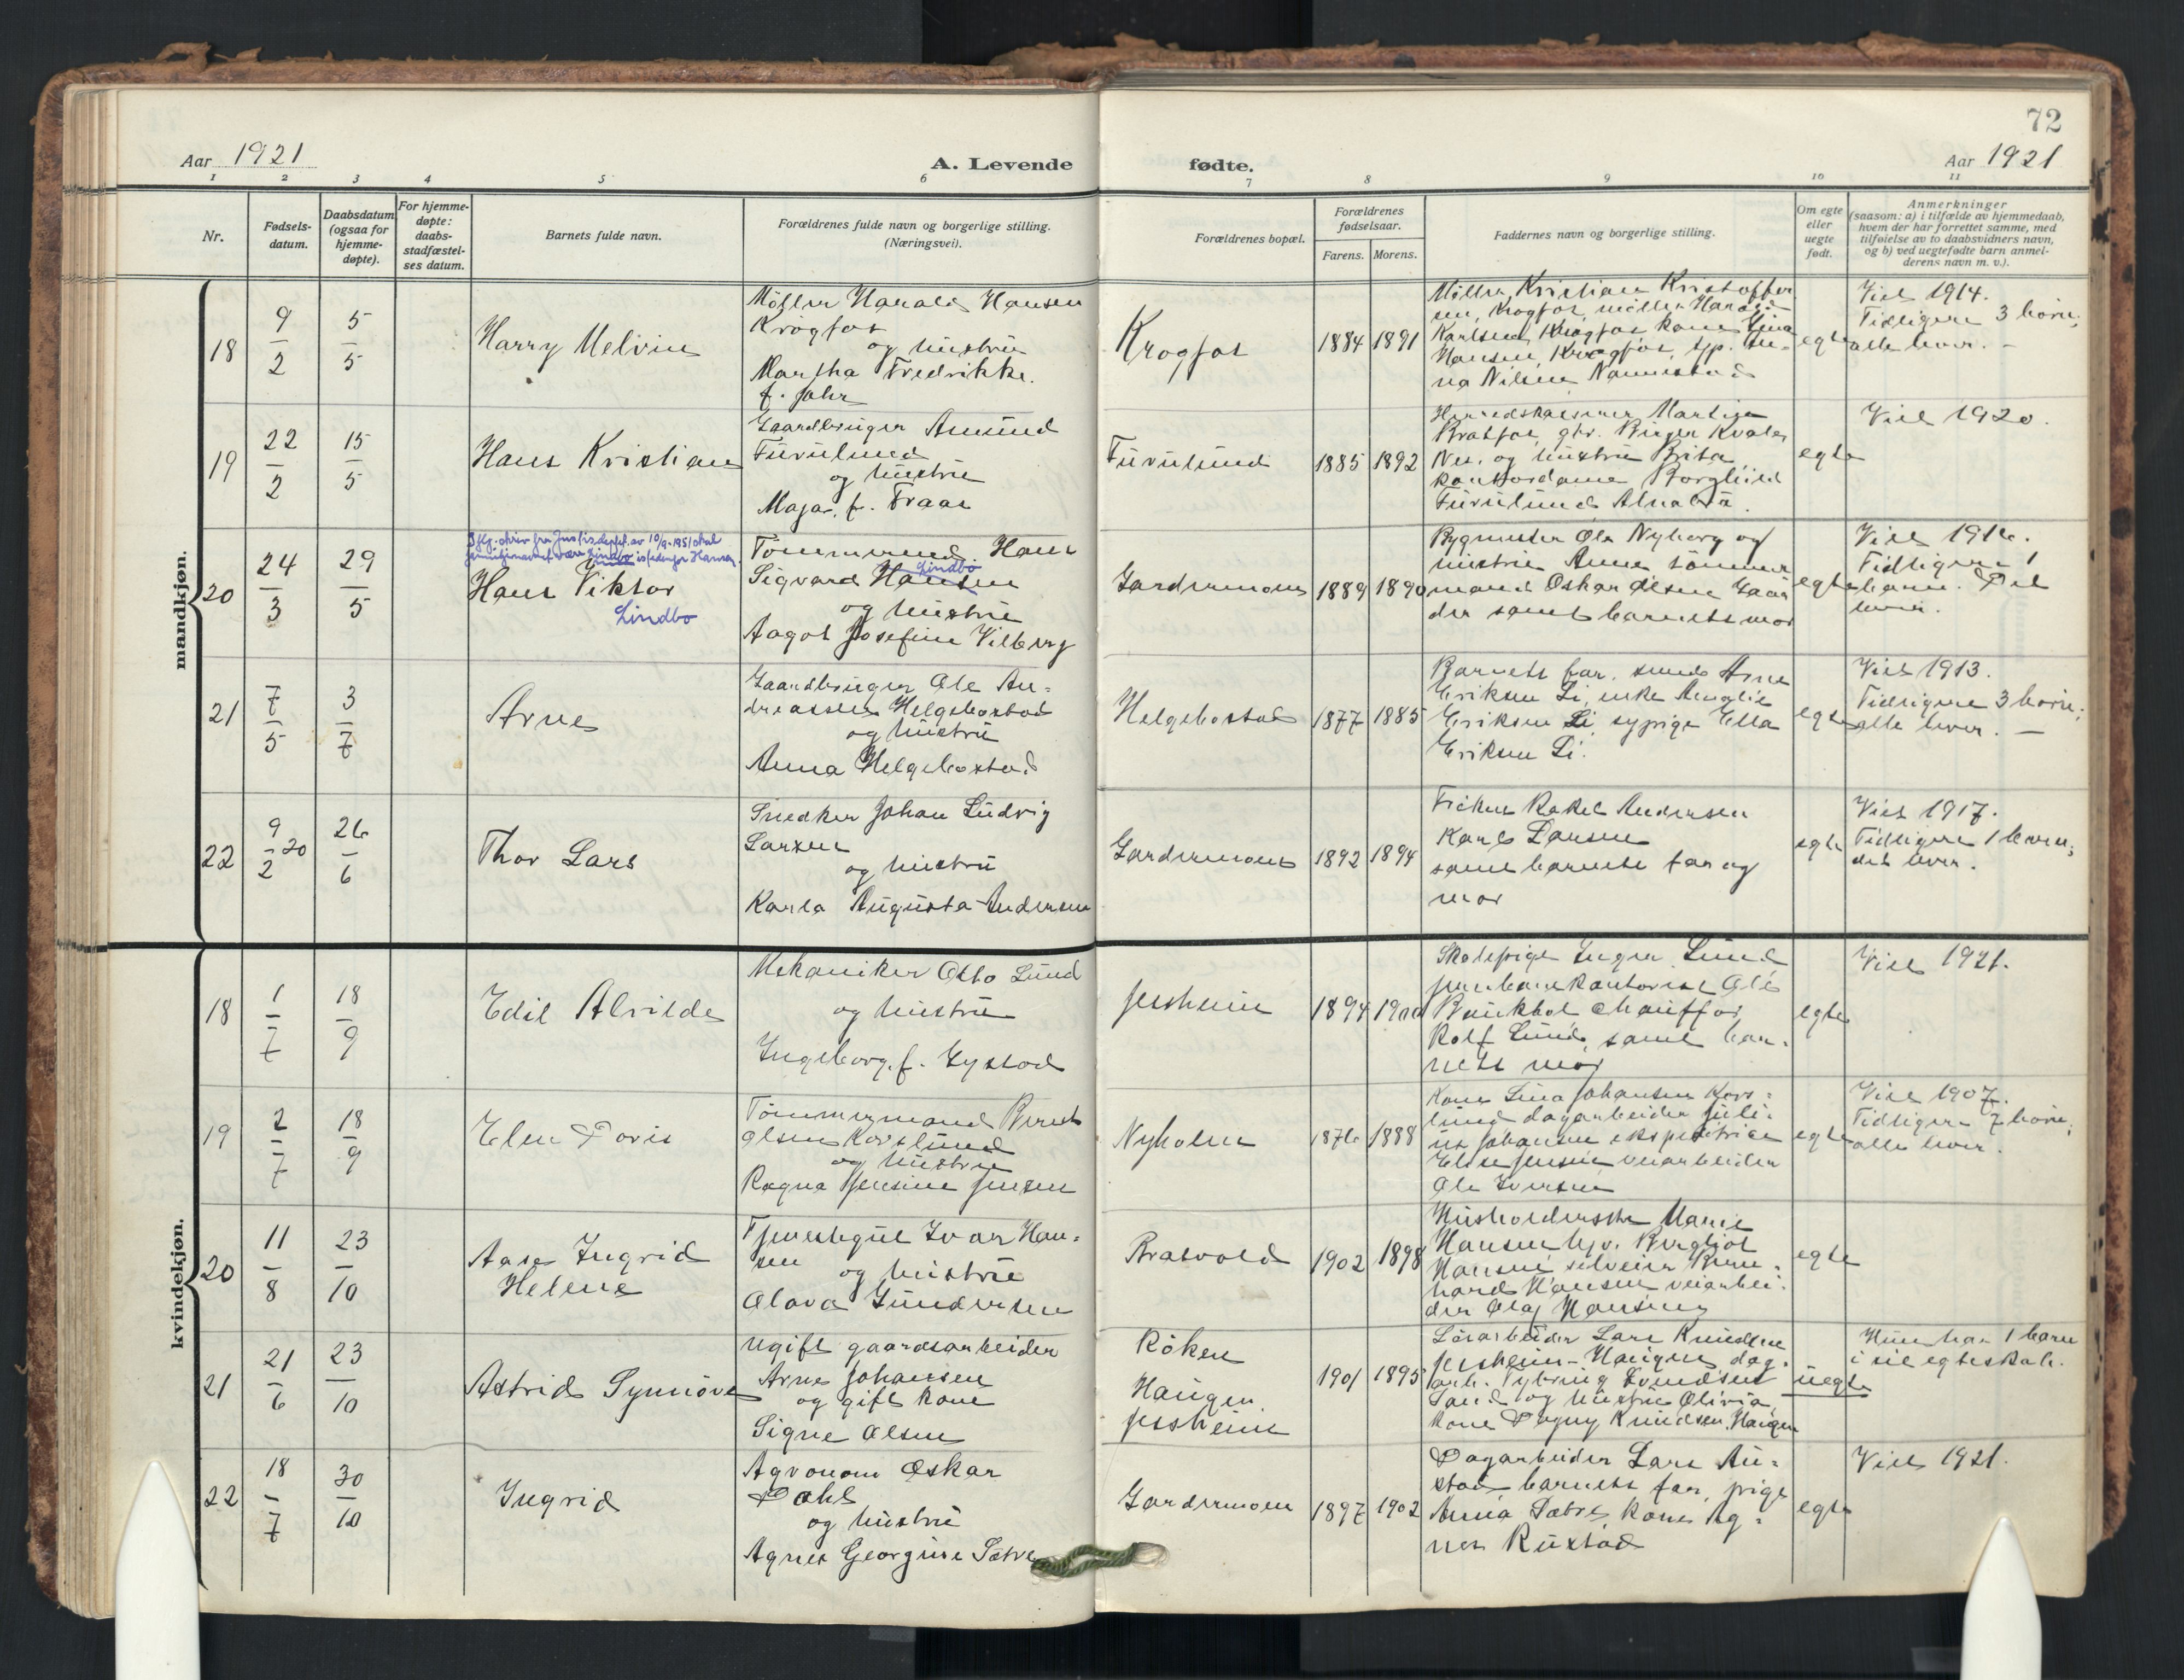 72
Aar 1921
A. Levende
fødte.
Aar 1921
1 2 3 4 5 6 7 8 9 10 11
Nr.
Fødsels-
datum.
Daabsdatum
(ogsaa for
hjemme-
døpte).
For hjemme-
døpte:
daabs-
stadfæstel-
ses datum.
Barnets fulde navn.
Forældrenes fulde navn og borgerlige stilling.
(Næringsvei).
Forældrenes bopæl.
Forældrenes
fødselsaar.
Farens. Morens.
Faddernes navn og borgerlige stilling.
Om egte
eller
uegte
født.
Anmerkninger
(saasom: a) i tilfælde av hjemmedaab,
hvem der har forrettet samme, med
tilføielse av to daabsvidners navn,
og b) ved uegtefødte barn anmel-
derens navn m. v.).
mandkjøn.
18
9/2
5/5
Harry Melvin
Møller Harald Hansen
Krogfos
og hustru
Martha Fredrikke.
f. Jahr
Krogfos
1884 1891
Møller Kristian Kristoffer
sen, Krogfos, møller Harald
Karlsen Krogfos kone
Hansen, Krogfos,
na Nilsen Nannestad
egte
Viet 1914.
Tidligere 3 børn;
alle lever. —
19
22/2
15/5
Hans Kristian
Gaardbruger Amund
Furulund
og hustru
Maja, f. Traas
Furulund
1885 1892
Herredskasserer Martin
Bratfos, gbr. Birger Kvales
Nes. og hustru Brita
kontordame Borghild
Furulund Alnabru.
egte
Viet 1920.
20
24/3
29/5
Iflg. skriv fra Justisdeptet. av 10/9-1951 skal
familienavnet være Lindbo istedenfor Hansen.
Hans Viktor
Lindbo
Tømmermand Hans
Lindbo
Sigvard Hansen
og hustru
Aagot Josefine Vilberg
Gardermoen
1889 1890
Bygmester Ole Nyborg og
hustru Anna tømmer
mand Oskar Olsen Gaar
der samt barnets mor
egte
Viet 1916.
Tidligere 1
barn. Det
lever.
21
7/5
3/7
Arne
Gaardbruger Ole An-
dreassen Helgebostad
og hustru
Anna Helgebostad
Helgebostad
1877 1885
Barnets far, smed Arne
Eriksen Li, enke Amalie
Eriksen Li sypige Ella
Eriksen Li.
egte
Viet 1913.
Tidligere 3 børn;
alle lever. —
22
9/2 20
26/6
Thor Lars
Snedker Johan Ludvig
Larsen
og hustru
Karla Augusta Andersen
Gardermoen
1892 1894
Frøken Rakel Andersen
Karl Larsen
samt barnets far og
mor
egte
Viet 1917.
Tidligere 1 barn;
det lever.
kvindekjøn.
18
1/7
18/9
Edil Alvilde
Mekaniker Otto Lund
og hustru
Ingeborg, f. Gystad
Jessheim
1894 1900
Skolepige Inger Lund
jernbanekontorist Ole
chauffør
Rolf Lund, samt bar-
nets mor
egte
Viet 1921.
19
2/7
18/9
Elen Doris
Tømmermand Bernt
Olsen Korslund
og hustru
Ragna Jensine Jensen
Nyholm
1876 1888
Kone Lina Johansen Kors-
lund dagarbeider Juli-
us Johansen ekspeditrice
Else Jensen veiarbeider
Ole Iversen
egte
Viet 1907.
Tidligere 7 børn;
alle lever.
20
11/8
23/10
Aase Ingrid
Helene
Tjenestegut Ivar Han-
sen
og hustru
Olava Gundersen
Brasvold
1902 1898
Husholderske Marie
Hansen tjp. Bergljot
Hansen selveier Bern-
hard Hansen veiarbei-
der Olaf Hansen
egte
21
21/6
23/10
Astrid Synnøve
Ugift gaardsarbeider
Arne Johansen
og gift kone
Signe Olsen
Røken
Haugen
Jessheim
1901 1895
Løsarbeider Lars Knudsen
Jessheim-Haugen, dag-
arb. Svendsen
Sand og hustru Olivia,
kone Dagny Knudsen Haugen
uegte
Hun har 1 barn
i sit egteskab.
22
18/7
30/10
Ingrid
Agronom Oskar
Dahl
og hustru
Agnes Georgine Sætre
Gardermoen
1897 1902
Dagarbeider Lars Au-
stad, barnets far, pige
Anna Sætre, kone Ag-
nes Rustad
egte
Viet 1921.